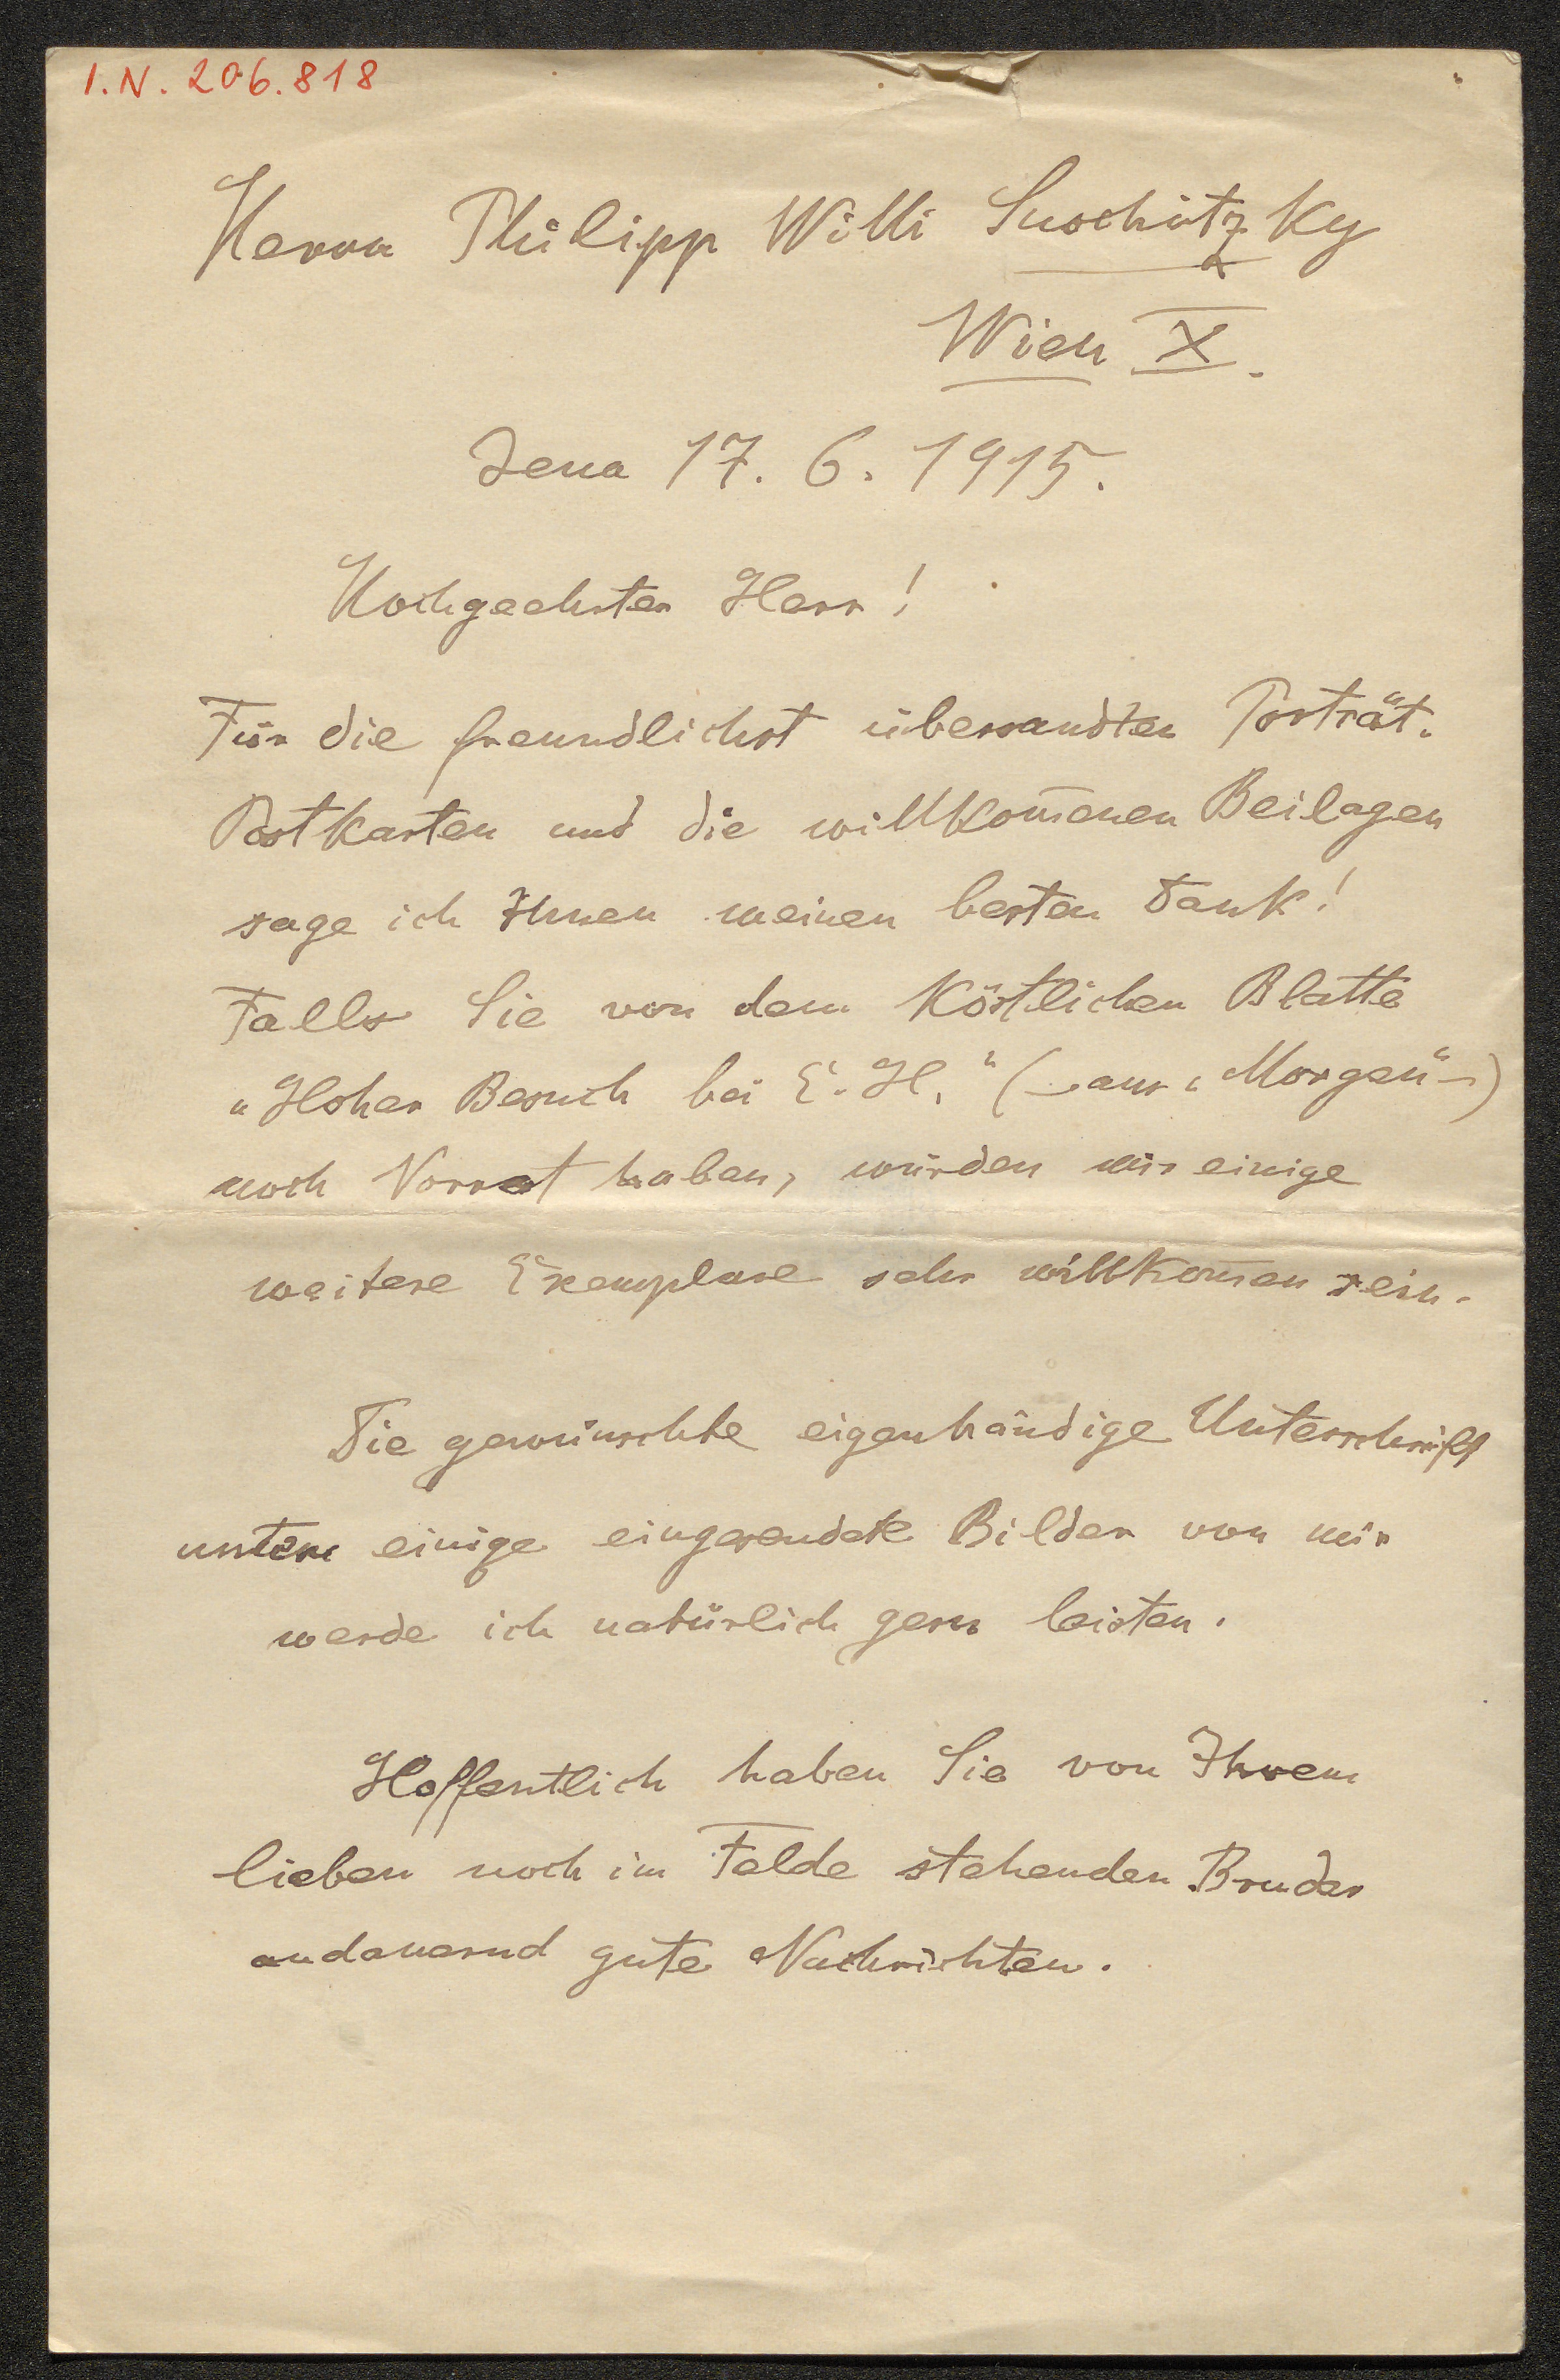 I.N. 206.818
Herrn Philipp Willi Suschitzky
Wien X.
Jena 17. 6. 1915.
Hochgeehrter Herr!
Für die freundlichst übersandten Porträt-
Postkarten und die willkom̅enen Beilagen
sage ich Ihnen meinen besten Dank!
Falls Sie von dem köstlichen Blatte
„Hoher Besuch bei E. H.“ (– aus „Morgen“ –)
noch Vorrat haben, würden mir einige
weitere Exemplare sehr willkom̅en sein.
Die gewünschte eigenhändige Unterschrift
unter einige eingesendete Bilder von mir
werde ich natürlich gern leisten.
Hoffentlich haben Sie von Ihrem
lieben noch im Felde stehenden Bruder
andauernd gute Nachrichten.